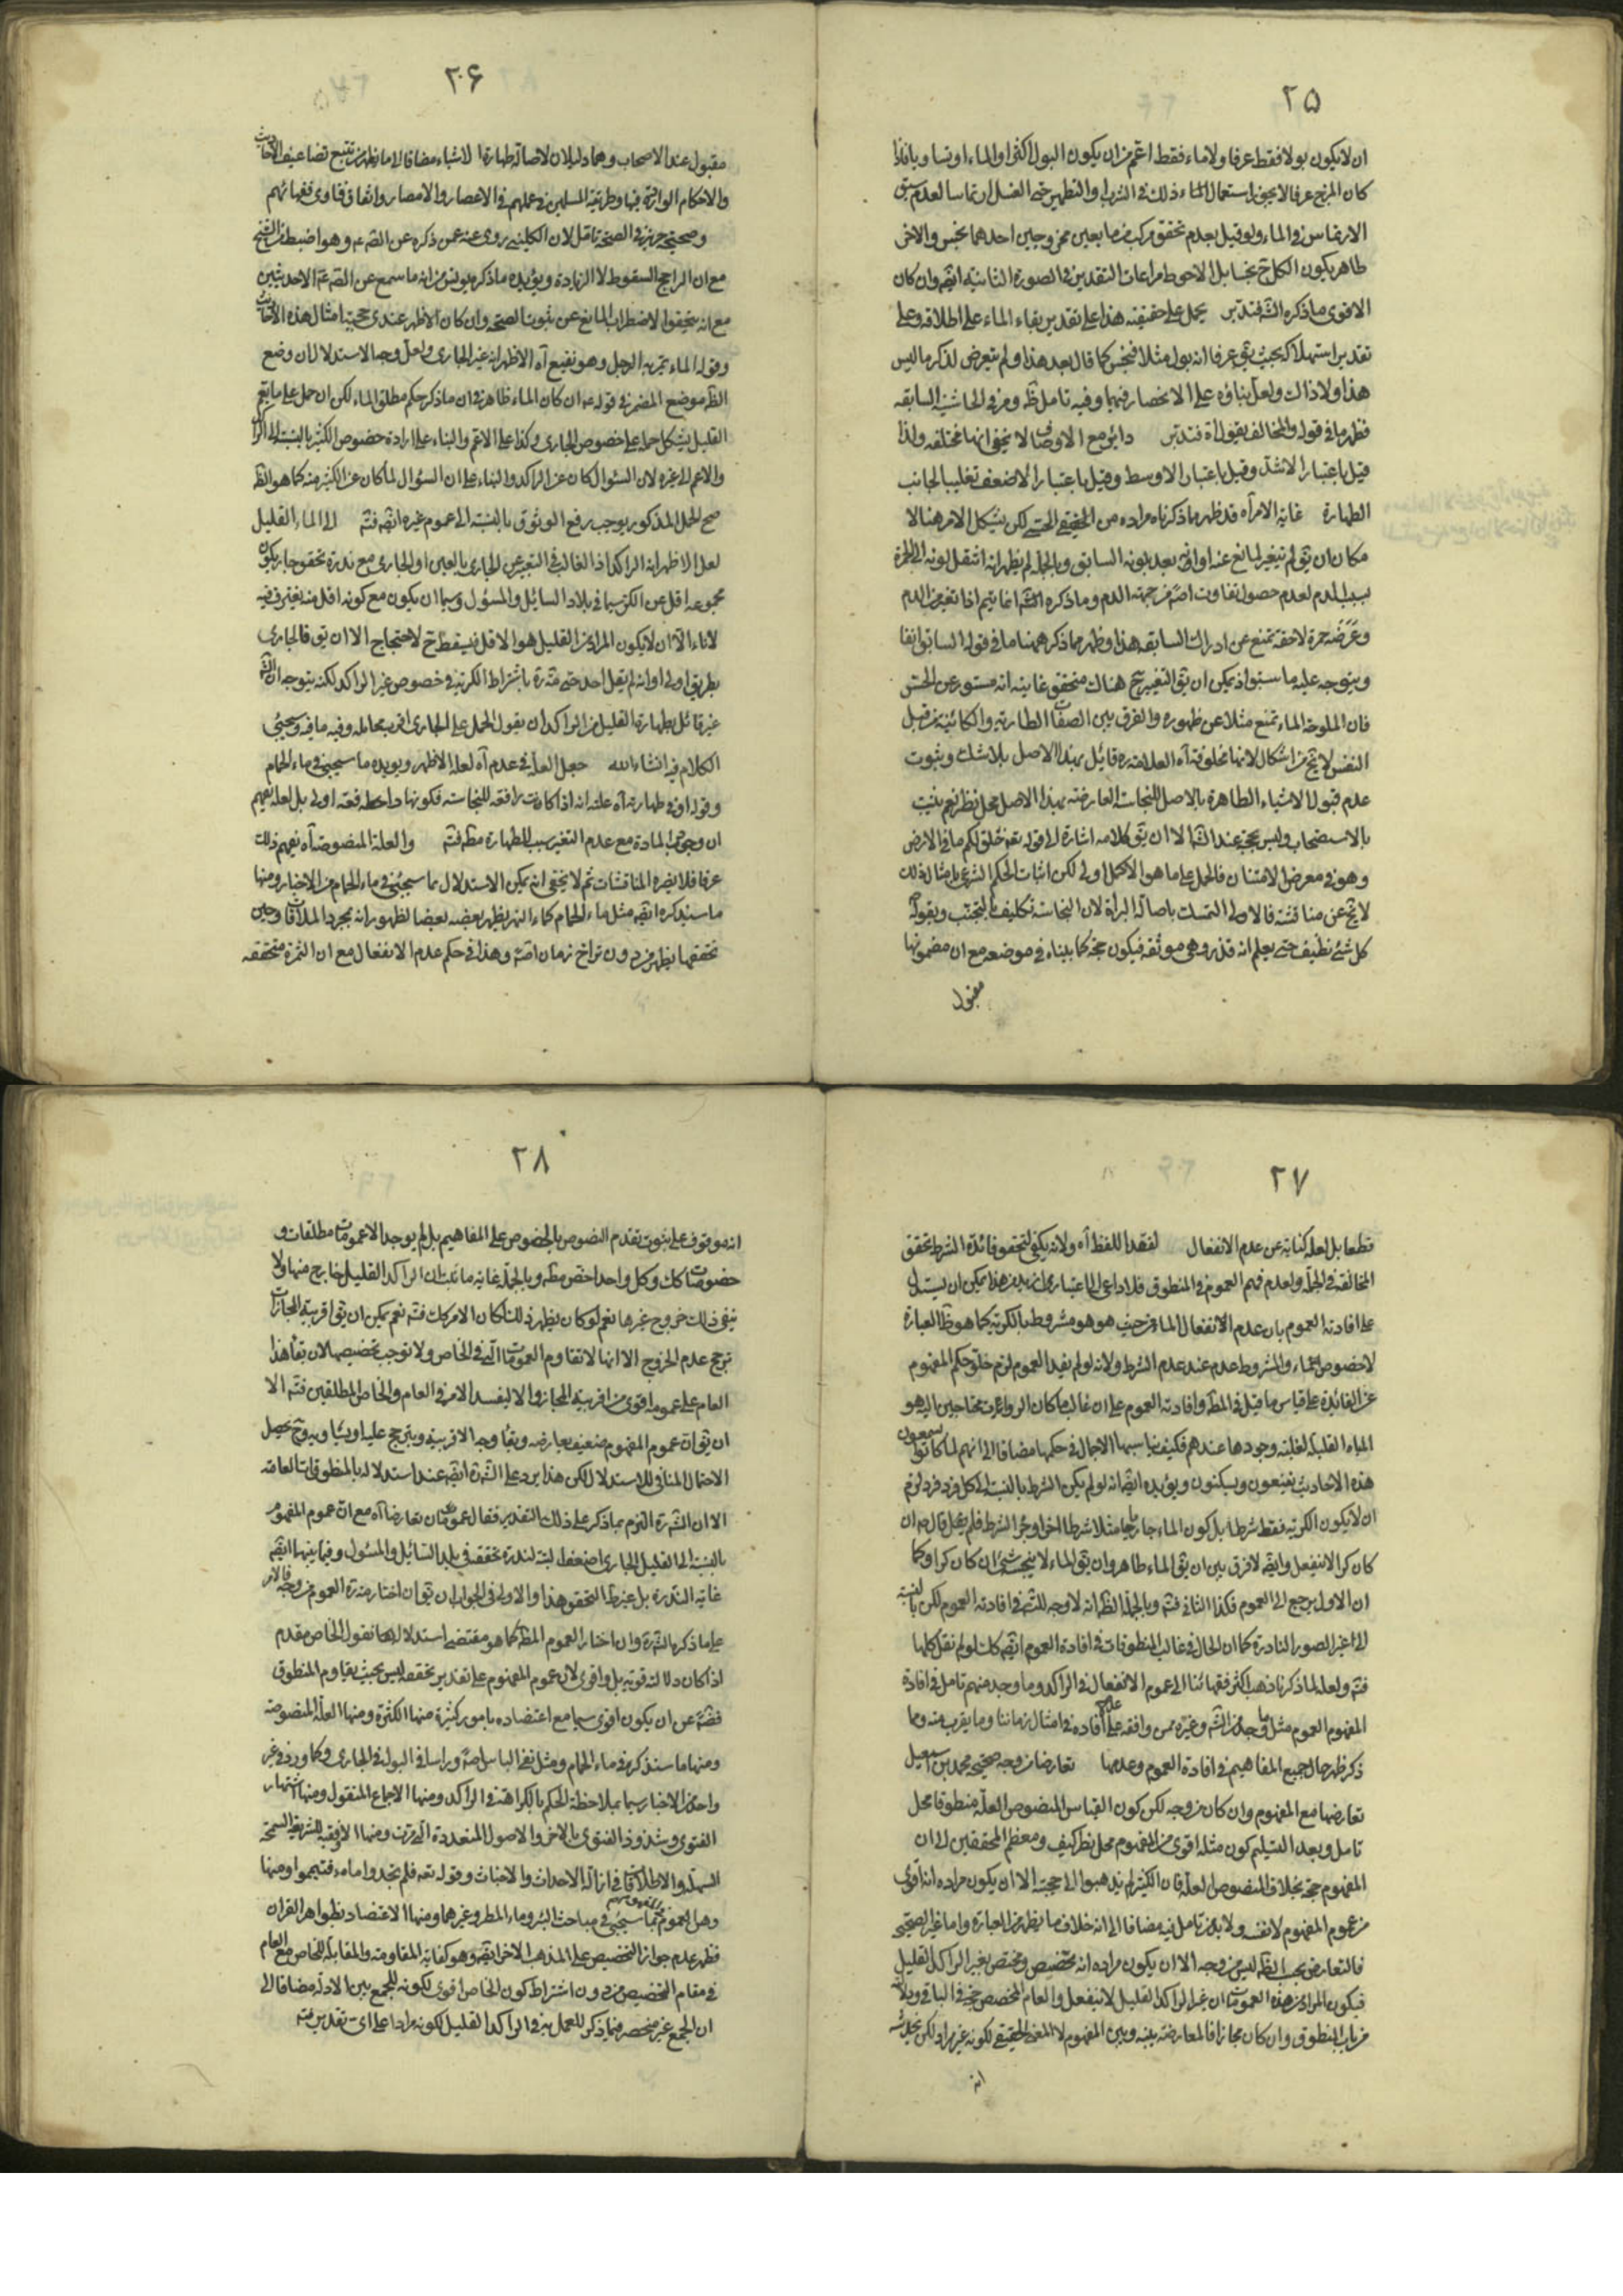 ٢٥
ان لا يكون بولا فقط عرفا ولا ماء فقط اعم من ان يكون البول اكثر او الماء او تساويا فاذا
كان المزج عرفا لا يجوز استعمال الماء ذلك في الشرب والتطهير حتى الغسل ارتماسا لعدم سبق
الارتماس في الماء ولو قيل بعدم تحقق مركب من مايعين ممزوجين احدهما نجس والاخر
طاهر يكون الكل ح نجسا بل الاحوط مراعات التقدير في الصورة الثانية ايضا وان كان
الاقوى ما ذكره الش فتدبر يحمل على حقيقته هذا على تقدير بقاء الماء على اطلاقه وعلى
تقدير استهلاكه بحيث يق عرفا انه بول مثلا فنجس كما قال بعد هذا ولم يتعرض لذكر ما ليس
هذا ولا ذاك ولعل بناؤه على الانحصار فيهما وفيه تامل ظ ومر في الحاشية السابقه
فظهر ما في قوله والمخالف بقول اه فتدبر دائر مع الاوصاف لا يخفى انها مختلفه ولذا
قيل باعتبار الاشد وقيل باعتبار الاوسط وقيل باعتبار الاضعف تغليبا لجانب
الطهارة غاية الامر اه قد ظهر ما ذكرناه مراده من الحقيقي الحسي لكن يشكل الامر هنا لا
مكان ان يق لم يتغير لمانع عنه او انه بعد بلونه السابق وبالجملة لم يظهر انه انتقل لونه الى الحمرة
بسبب الدم لعدم حصول تفاوت اصلا من جهة الدم وما ذكره الش انما يتم اذا تغير من الدم
وعرضه حمرة لاحقة تمنع عن ادراك السابقه هذا وظهر مما ذكر هيهنا ما في قوله السابق انفا
ويتوجه عليه ما سبق اذ يمكن ان يق التغيير ح هناك متحقق غايته انه مستور عن الحس
فان الملوحة الماء تمنع مثلا عن ظهوره والفرق بين الصفات الطارية والكائنة من قبل
النفس لا يخ من اشكال لانها مخلوقة اه العلامة ره قائل بهذا الاصل بلا شك وبثبوت
عدم قبول الاشياء الطاهرة بالاصل للنجاسة العارضة بهذا الاصل محل نظر نعم يثبت
بالاستصحاب وليس بحجة عند الش الا ان يق كلامه اشارة الى قوله تعه خلق لكم ما في الارض
وهو في معرض الامتنان فالحمل على ما هو الاكمل اولى لكن اثبات الحكم الشرعي بامثال ذلك
لا يخ عن مناقشة فالاولى التمسك باصالة البراة لان النجاسة تكليف بالتجنب وبقوله
كل شئ نظيف حتى يعلم انه قذر وهي موثقه فيكون حجة كما بيناه في موضعه مع ان مضمونها
مقبول
٢۶
مقبول عند الاصحاب وهما دليلان لاصالة طهارة الاشياء مضافا الى ما يظهر من تتبع تضاعيف الاحاديث
والاحكام الواردة فيها وطريقة المسلمين في عملهم في الاعصار والامصار واتفاق فتاوى فقهائهم
وصحيحة حريز في الصحة تامل لان الكليني روى عنه عمن ذكره عن الص ع وهو اضبط من الشيخ
مع ان الراجح السقوط لا الزيادة ويؤيده ما ذكره يونس من انه ما سمع عن الص ع الا حديثين
مع انه يتحقق الاضطراب المانع عن ثبوت الصحة وان كان الاظهر عندى حجية امثال هذه الاحاديث
وقوله الماء يمر به الرجل وهو نقيع اه الاظهر انه غير الجارى ولعل وجه الاستدلال ان وضع
الظ موضع المضمر في قوله ع ان كان الماء ظاهر في ان ما ذكر حكم مطلق الماء لكن ان حمل على ما يعم
القليل يشكل حمله على خصوص الجارى وكذا على الاعم والبناء على ارادة خصوص الكثير بالنسبة الى الراكد
والاعم الى غيره لان السؤال كان عن الراكد والبناء على ان السؤال لما كان عن الكثير منه كما هو الظ
صح الحمل المذكور يوجب رفع الوثوق بالنسبة الى عموم غيره ايضا فت الى الماء القليل
لعل الاظهر انه الراكد اذ الغالب في التعبير عن الجارى بالعين او الجارى مع ندرة تحقق جار يكون
مجموعه اقل من الكر سيما في بلاد السائل والمسؤل وسيما ان يكون مع كونه اقل منه يغترف فيه
لاناء الا ان لا يكون المراد من القليل هو الاقل فيسقط ح لاحتجاج الا ان يق فالجارى
بطريق اولى او انه لم يقل احد حتى مة ره باشتراط الكرية في خصوص غير الراكد لكنه يتوجه ان الش
غير قائل بطهارة القليل من الراكد ان بقول الحمل على الجارى اقرب محامله وفيه ما فيه وسيجئ
الكلام فيه انشاء الله جعل العلة في عدم اه لعله الاظهر ويويده ما سيجئ في ماء الحمام
وقوله او في طهارته اه علته انه اذا كانت رافعه للنجاسة فكونها دافعة اولى بل لعله يفهم
ان وجود المادة مع عدم التغير سبب للطهارة مط فت والعلة المنصوصة اه يفهم ذلك
عرفا فلا يضره المناقشات ثم لا يخفى انه يمكن الاستدلال بما سيجئ في ماء الحمام من الاخبار ومنها
ما سيذكره ايضا مثل ماء الحمام كماء النهر يطهر بعضه بعضا لظهور انه بمجرد الملاقات وحين
تحققها يطهر من دون تراخ زمان اصلا وهذا في حكم عدم الانفعال مع ان الثمرة متحققه
٢٧
قطعا بل لعله كناية عن عدم الانفعال لفقد اللفظ اه ولانه يكفي لتحقق فائدة الشرط تحقق
المخالفة في الجملة ولعدم فهم العموم في المنطوق فلا داعى الى اعتبار ازيد من هذا يمكن ان يستدل
على افادته العموم بان عدم الانفعال الماء من حيث هو هو مشروط بالكرية كما هو ظ العبارة
لا خصوص ماء والمشروط عدم عند عدم الشرط ولانه لو لم يفد العموم لزم خلو حكم المفهوم
عن الفائدة على قياس ما قيل في المط وافادته العموم على ان غالب ما كان الرواة محتاجين اليه هو
المياه القليلة لغلبة وجودها عندهم فكيف يناسبها الاجمال في حكمها مضافا الى انهم لما كانوا يسمعون
هذه الاحاديث يقنعون ويسكتون ويؤيده ايضا انه لو لم يكن الشرط بالنسبة الى كل فرد فرد لزم
ان لا يكون الكرية فقط شرطا بل كون الماء جاريا مثلا شرطا اخر او جزء الشرط فلم يقل قال ع ان
كان كرا لا ينفعل وايضا لا فرق بين ان يق الماء طاهر وان يق الماء لا ينجسه شئ ان كان كرا وكما
ان الاول يرجع الى العموم فكذا الثاني فت وبالجملة الظ انه لا وجه للش في افادته العموم لكن بالنسبة
الى غير الصور النادرة كما ان الحال في غالب المنطوقات في افادة العموم ايضا كك لو لم نقل كلها
فت ولعله لما ذكرنا ذهب اكثر فقهائنا الى عموم الانفعال في الراكد وما وجد منهم تامل في افادة
المفهوم العموم مثل ما وجد من الش وغيره ممن وافقه على عدم افادته في امثال زماننا وما يقرب منه ومما
ذكر ظهر حال جميع المفاهيم في افادة العموم وعدمها تعارضا من وجه صحيحة محمد بن اسمعيل
تعارضها مع المفهوم وان كان من وجه لكن كون القياس المنصوص العلة منطوقا محل
تامل وبعد التسليم كون مثله اقوى من المفهوم محل نظر كيف ومعظم المحققين الى ان
المفهوم حجة بخلاف المنصوص العلة فان الكثير لم يذهبوا الى حجيته الا ان يكون مراده انه اقوى
من عموم المفهوم لا نفسه ولا بد من تامل فيه مضافا الى انه خلاف ما يظهر من العبارة واما غير الصحيحة
فالتعارض بحسب الظ ليس من وجه الا ان يكون مراده انه تخصيص ومختص بغير الراكد القليل
فيكون المراد من هذه العمومات ان غير الراكد القليل لا ينفعل والعام المخصص حجة في الباقي ودلالته
من باب المنطوق وان كان مجازا فالمعارضة بينه وبين المفهوم لا المعنى الحقيقي لكونه غير مراد لكن يخدشه
انه
٢٨
انه موقوف على ثبوت تقدم النصوص بالخصوص على المفاهيم بل لم يوجد الا عمومات مطلقات و
خصوصات كك وكل واحد اخص مط وبالجملة غاية ما ثبت ان الراكد القليل خارج منها ولا
ينفي ذلك خروج غيرها نعم لو كان يظهر ذلك لكان الامر كك فت نعم يمكن ان يق اقربية المجازات
ترجح عدم الخروج الا انها لا تقاوم العمومات التي في الخاص ولا توجب تخصيصها لان بقاء هذا
العام على عمومه اقوى من اقربية المجاز والا ليفسد الامر في العام والخاص المطلقين فت الا
ان يق ان عموم المفهوم ضعيف يعارضه ويقاومه الاقربية ويترجح عليه او يساويه وح يحصل
الاحتمال المنافي للاستدلال لكن هذا يرد على الش ره ايضا عند استدلاله بالمنطوقات العامة
الا ان الش ره التزم بما ذكر على ذلك التقدير فقال عمومان تعارضا اه مع ان عموم المفهوم
بالنسبة الى القليل الجارى اضعف البتة لندرة تحققه في بلد السائل والمسئول وفيما بينهما ايضا
غاية الندرة بل غير ظ التحقق هذا والاولى في الجواب ان يق ان اختار مة ره العموم من وجه فالامر
على ما ذكره الش ره وان اختار العموم المط كما هو مقتضى استدلاله لها نقول الخاص مقدم
اذا كان دلالته قوية بل واقوى لان عموم المفهوم على تقدير تحققه ليس بحيث يقاوم المنطوق
فضلا عن ان يكون اقوى سيما مع اعتضاده بامور كثيرة منها الكثرة ومنها العلة المنصوصة
ومنها ما سنذكر في ماء الحمام ومثل نفي الباس اصلا وراسا في البول في الجارى وكما ورد في غير
واحد من الاخبار سيما بملاحظة الحكم بالكراهة في الراكد ومنها الاجماع المنقول ومنها اشتهار
الفتوى وشذوذ الفتوى بالاخر والاصول المتعددة التي مرت ومنها الاوفقية للشريعة السمحة
السهلة والاطلاقات في ازالة الاحداث والاخباث وقوله تعه فلم تجدوا ماء فتيمموا ومنها
وهن العموم بما سيجئ في مباحث البئر وماء المطر وغيرهما ومنها الاعتضاد بظواهر القران
فظهر عدم جواز التخصيص على المذهب الاخر ايضا وهو كفاية المقاومة والمقابلة للخاص مع العام
في مقام التخصيص من دون اشتراط كون الخاص اقوى لكونه للجمع بين الادلة مضافا الى
ان الجمع غير منحصر فيما ذكر للعمل به في الراكد القليل لكونه مرادا على اى تقدير منه